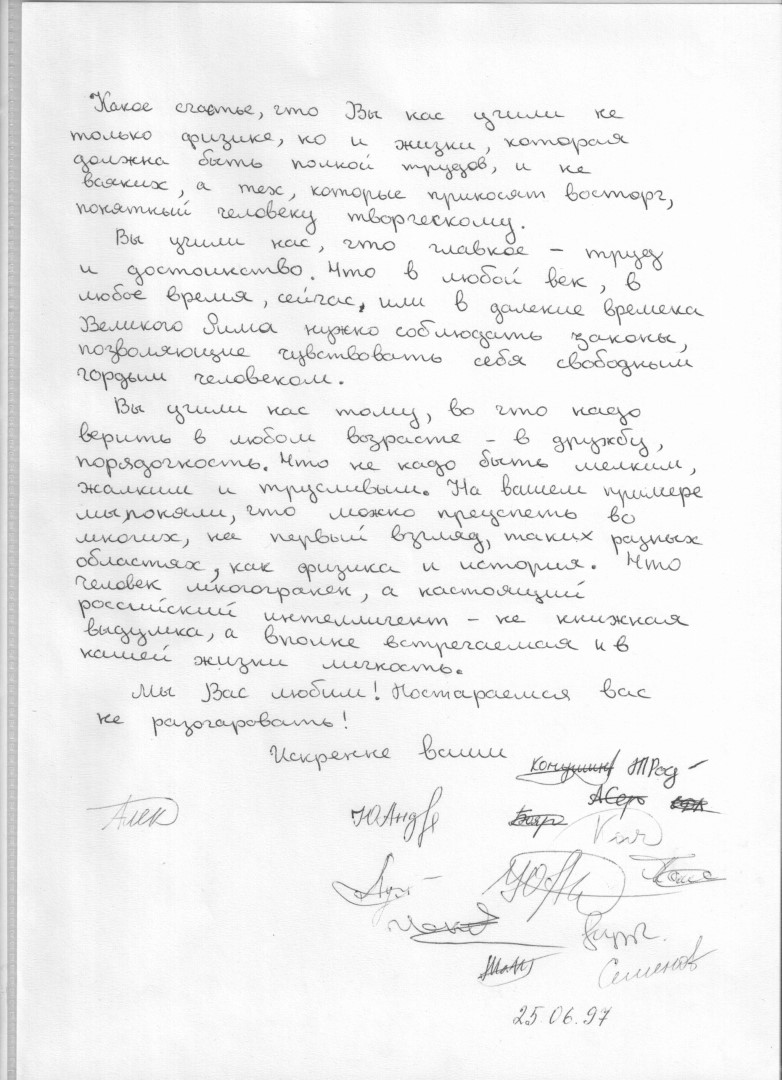 Какое счастье, что Вы нас учили не
только физике, но и жизни, которая
должна быть полной трудов, и не
всяких, а тех, которые приносят восторг,
понятный человеку творческому.
Вы учили нас, что главное – труд
и достоинство. Что в любой век, в
любое время, сейчас, или в далекие времена
Великого Рима нужно соблюдать законы,
позволяющие чувствовать себя свободным
гордым человеком.
Вы учили нас тому, во что надо
верить в любом возрасте – в дружбу,
порядочность. Что не надо быть мелким,
жалким и трусливым. На вашем примере
мы поняли, что можно преуспеть во
многих, на первый взгляд, таких разных
областях, как физика и история. Что
человек многогранен, а настоящий
российский интеллигент – не книжная
выдумка, а вполне встречаемая и в
нашей жизни личность.
Мы Вас любим! Постараемся вас
не разочаровать!
Искренне ваши
Алек
ЮАнд
Семенов
25.06.97